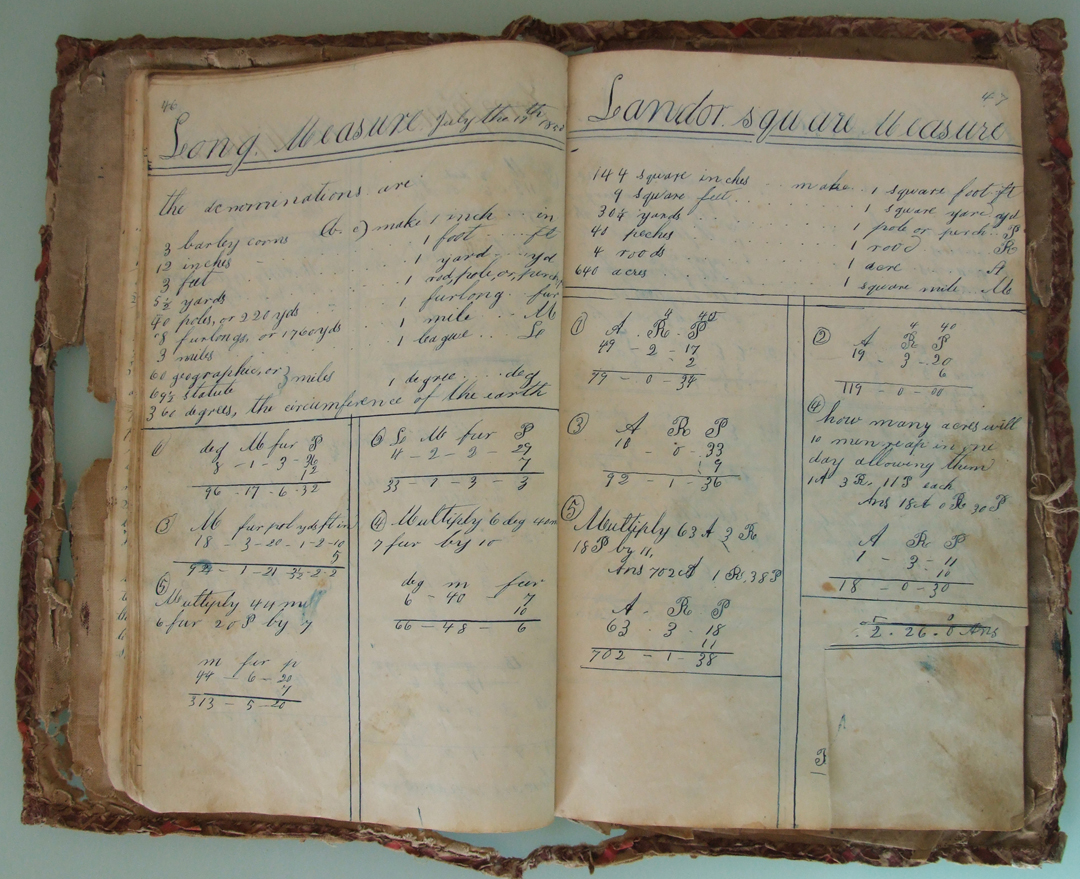 46
Long Measure July the 17th
the denominations are
3 barley corns (b. c) make 1 inch in
12 inches 1 foot ft
3 feet 1 yard yd
5½ yards 1 rod, pole, or, perch
40 poles, or 220 yds 1 furlong fur
8 furlongs, or 1760 yds 1 mile M
3 miles 1 league Le
60 geographic, or
69½ statute } miles 1 degree deg
360 degrees, the circumference of the earth
deg M fur P
12
96 - 17 - 6 - 32
③
M fur pol yds ft in
18 3 - 20 - 1 - 2 - 10
5
⑤
Multiply 44 m
6 fur 20 P by 7
m fur p
44 - 6 - 20
7
313 - 5 - 20
Le M fur P
11 - 2 - 2 - 29
7
④ Multiply 6 deg 40 m
7 fur by 10
deg m fur
6 - 40 - 7
10
66 - 48 - 6
47
Land or square Measure
144 square inches make 1 square foot ft
9 square feet 1 square yare yd
30¼ yards 1 pole or perch P
40 peches 1 rood R
4 roods 1 acre A
640 acres 1 square mile M
①
4 40
A . R . P
49 - 2 - 17
2
79 - 0 - 34
③
A R P
10 - 0 . 33
9
92 - 1 - 36
⑤
Multiply 63 A 3 R
18 P by 11,
Ans 702 A 1 R, 38 P
A - R P
63 . 3 . 18
11
702 - 1 - 38
②
4 40
A R P
19 - 3 - 20
6
119 - 0 - 00
④
how many acres will
10 men reap in one
day allowing them
1 A 3 R, 11 P each
Ans 18 A 0 R 30 P
A R P
1 - 3 - 11
10
18 - 0 - 30
. 2 . 26 . 0 Ans